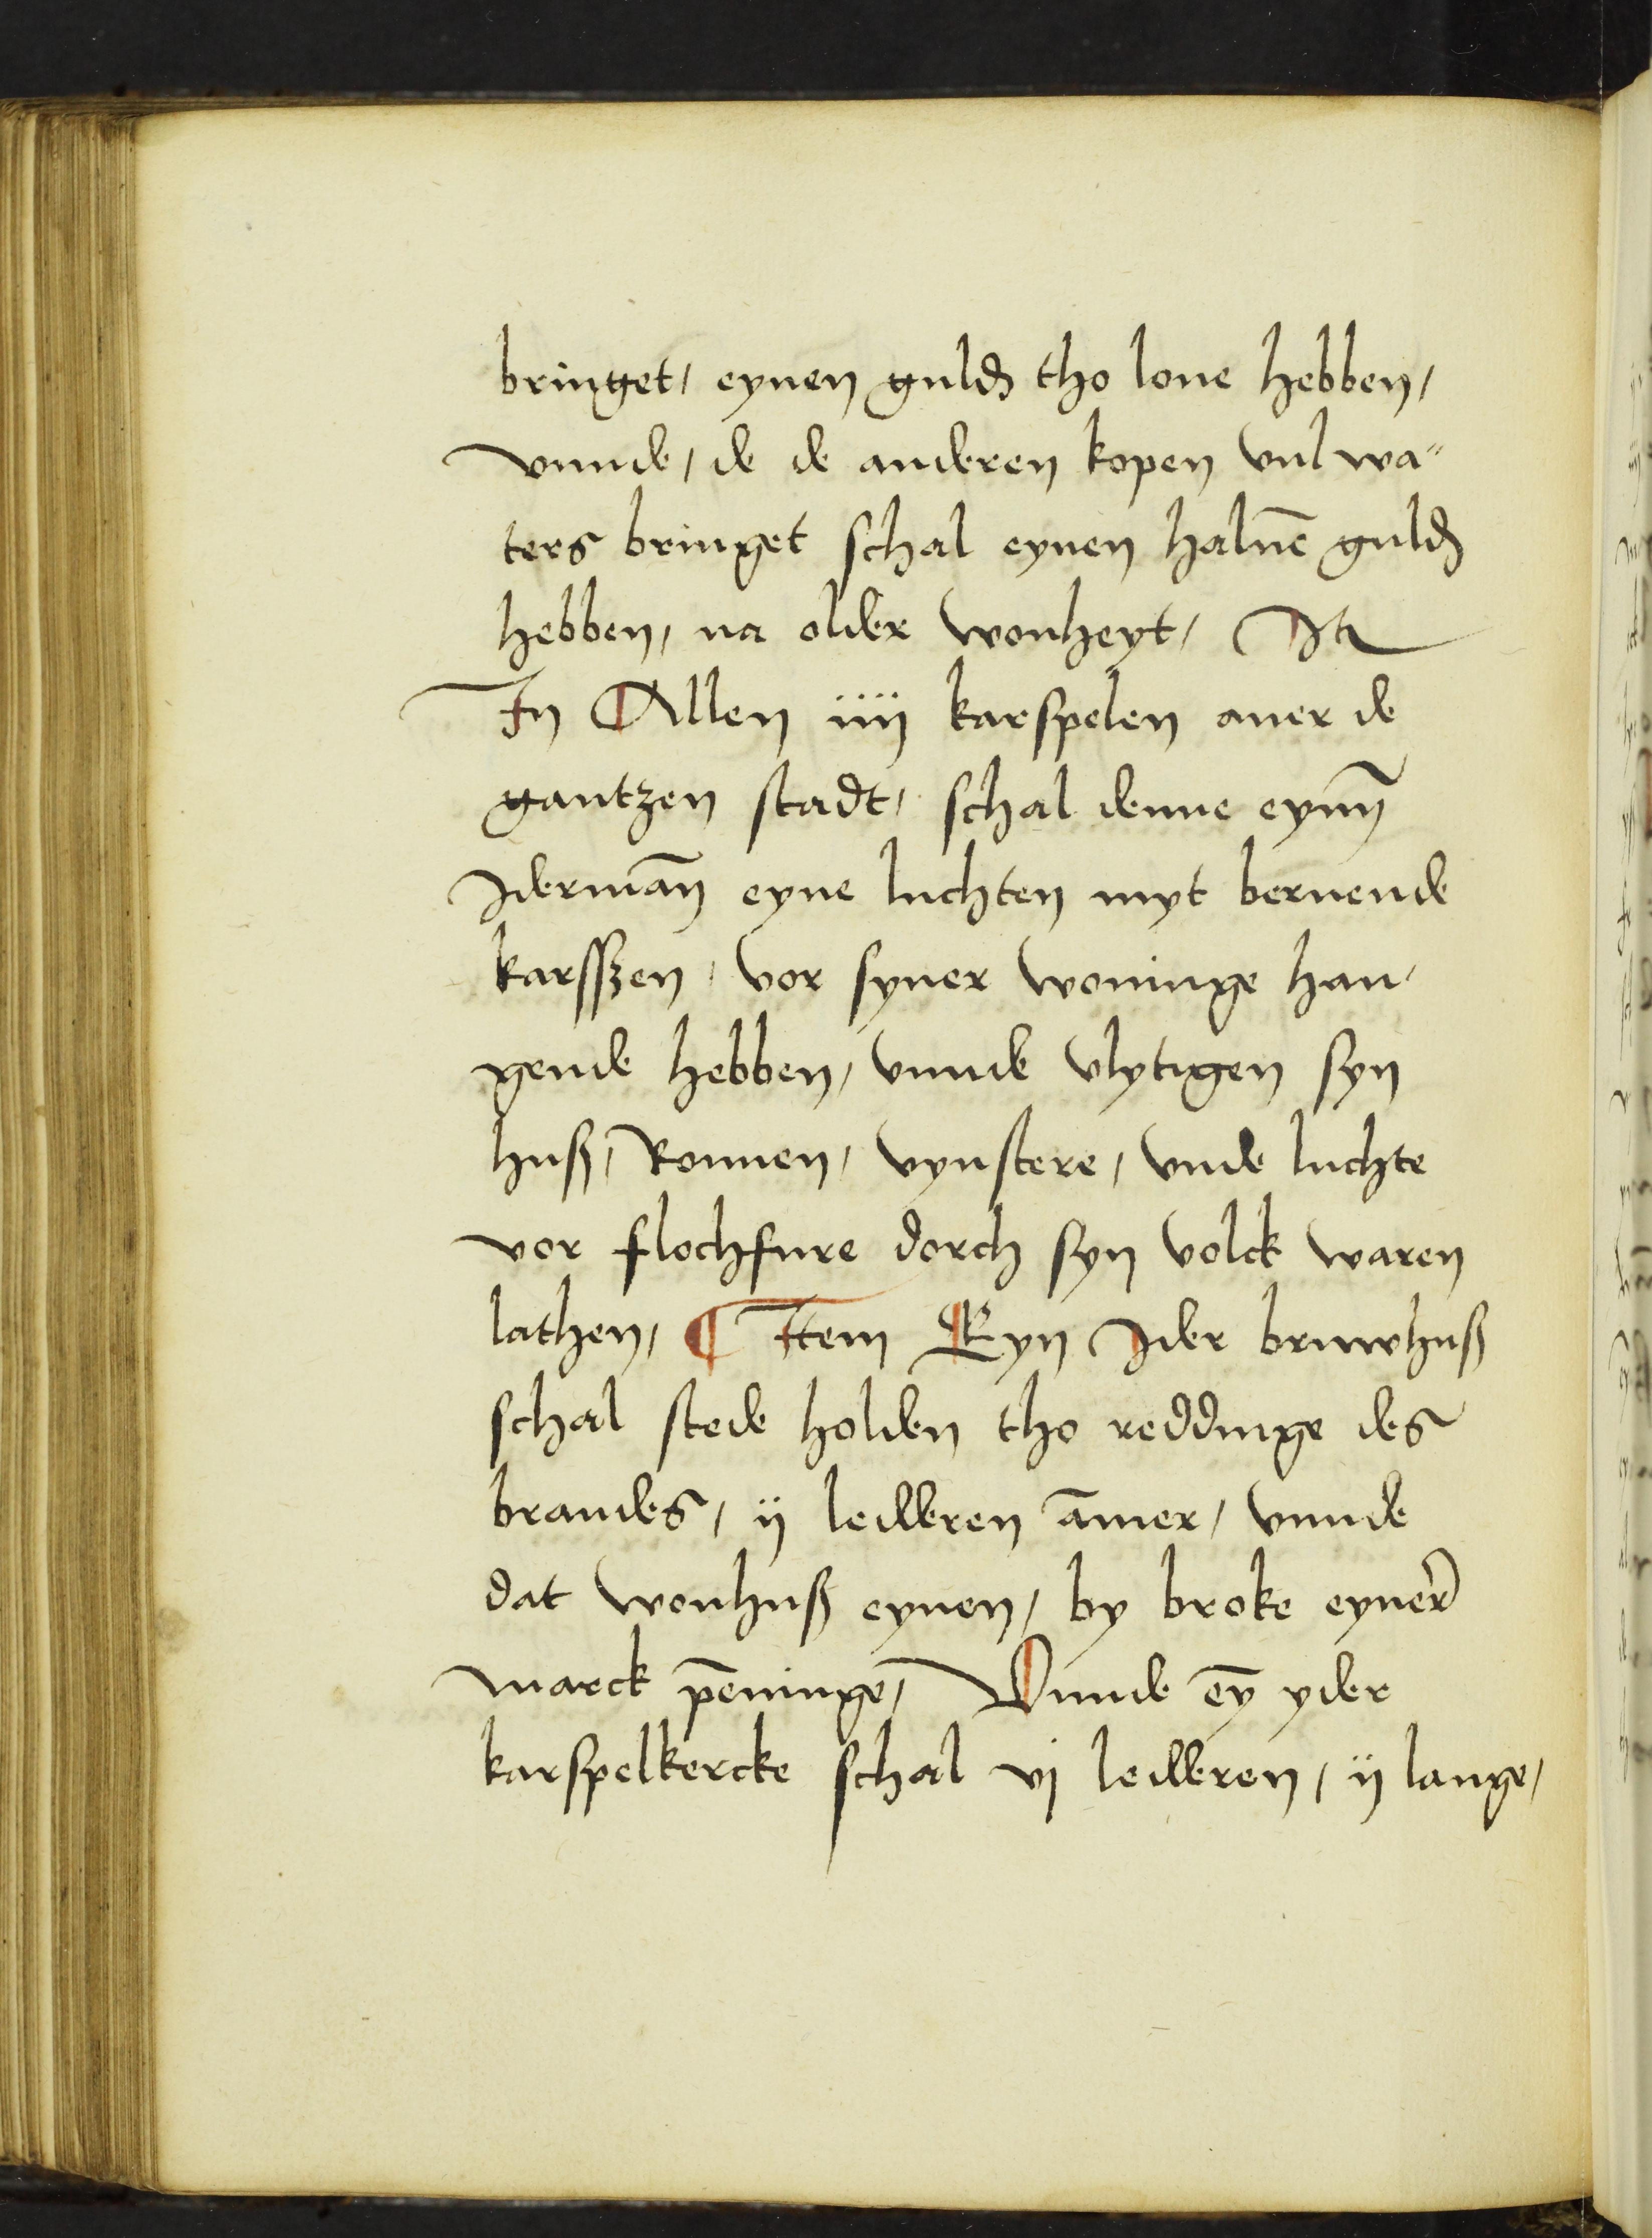 bringet, eynen guld tho lone hebben,
vnnde, de de anderen kopen vul wa-
ters bringet schal eynen haluē guld
hebben, na older wonheyt, It
In Allen iiij karspelen auer de
gantzen stadt, schal denne eynn
Idermā eyne luchten myt bernende
karsszen, vor syner woninge han,
gende hebben, vnnde vlytigen syn
huß, Ronnen, vynstere, vnde luchte
vor flochfure dorch syn volck waren
lathen, ¶ Item Eyn Ider bruwhuß
schal stede holden tho reddinge des
brandes, ij ledderen āmer, vnnde
dat wonhuß eynen, by broke eyner
marck pēninge, Vnnde ēy yder
karspelkercke schal vj ledderen, ij lange,